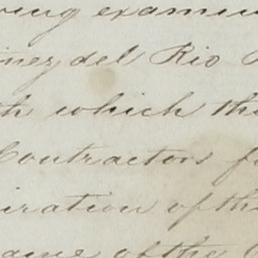 ving examin
inez del Rio
th which the
Contractors f
iration of the
ame of the